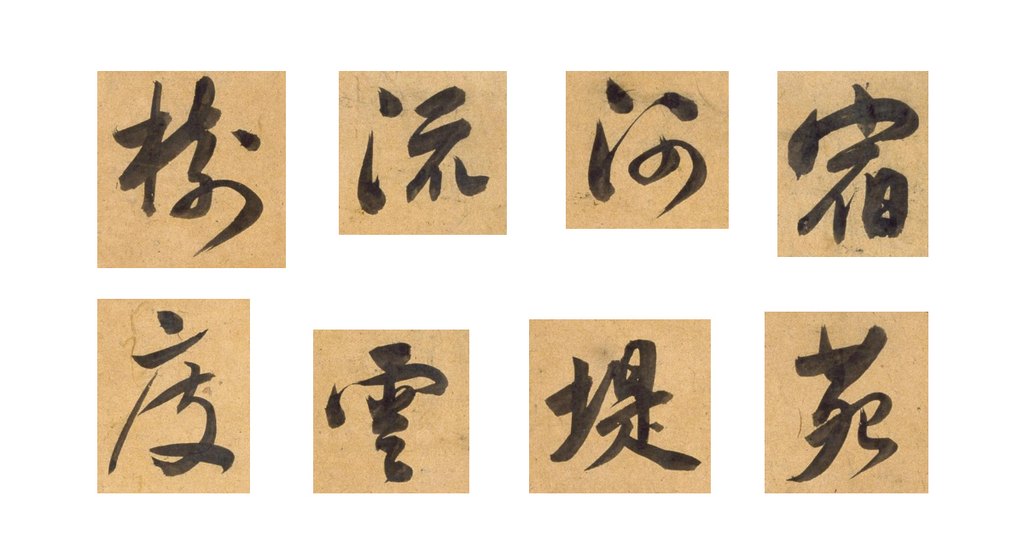 樹流河宿
度雲堤苑